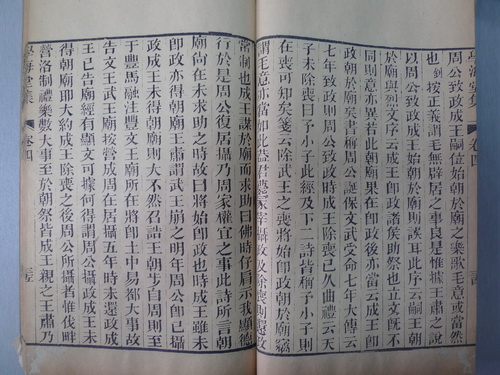 學海堂集 卷四
周公致政成王嗣位始朝於廟之樂歌毛意或當然
也釗按正義謂毛無避居之事良是惟據王肅之說
以周公致政成王始朝於廟則誤耳此序云嗣王朝
於廟與烈文序云成王卽政諸侯助祭也立文既不
同則意亦異若此朝廟果在卽政後亦當云成王卽
政朝於廟矣書稱周公誕保文武受命七年大傳云
七年致政則周公致政時成王除喪已久曲禮云天
子未除喪曰予小子此經及下二詩皆稱予小子則
在喪可知矣箋云除武王之喪將始卽政朝於廟竊
謂毛意亦當如此蓋君薨冢宰攝政除喪則還政
常制也成王謀於廟而求助曰佛時仔肩示我顯德
行於是周公復居攝乃周家權宜之事此詩所言朝
廟尚在未求助之時故曰將始卽政也時成王雖未
卽政亦得朝廟王肅謂武王崩之明年周公卽已攝
政成王未得朝廟則大不然召誥王朝步自周則至
于豐馬融注豐文王廟所在將卽土中易都大事故
告文王武王廟按營成周在居攝五年時未還政成
王已告廟經有顯文可據何得謂周公攝政成王未
得朝廟耶大約成王除喪之後周公所攝者惟伐畔
營洛制禮樂數大事至於朝祭皆成王親之王肅乃
學海堂集 卷四